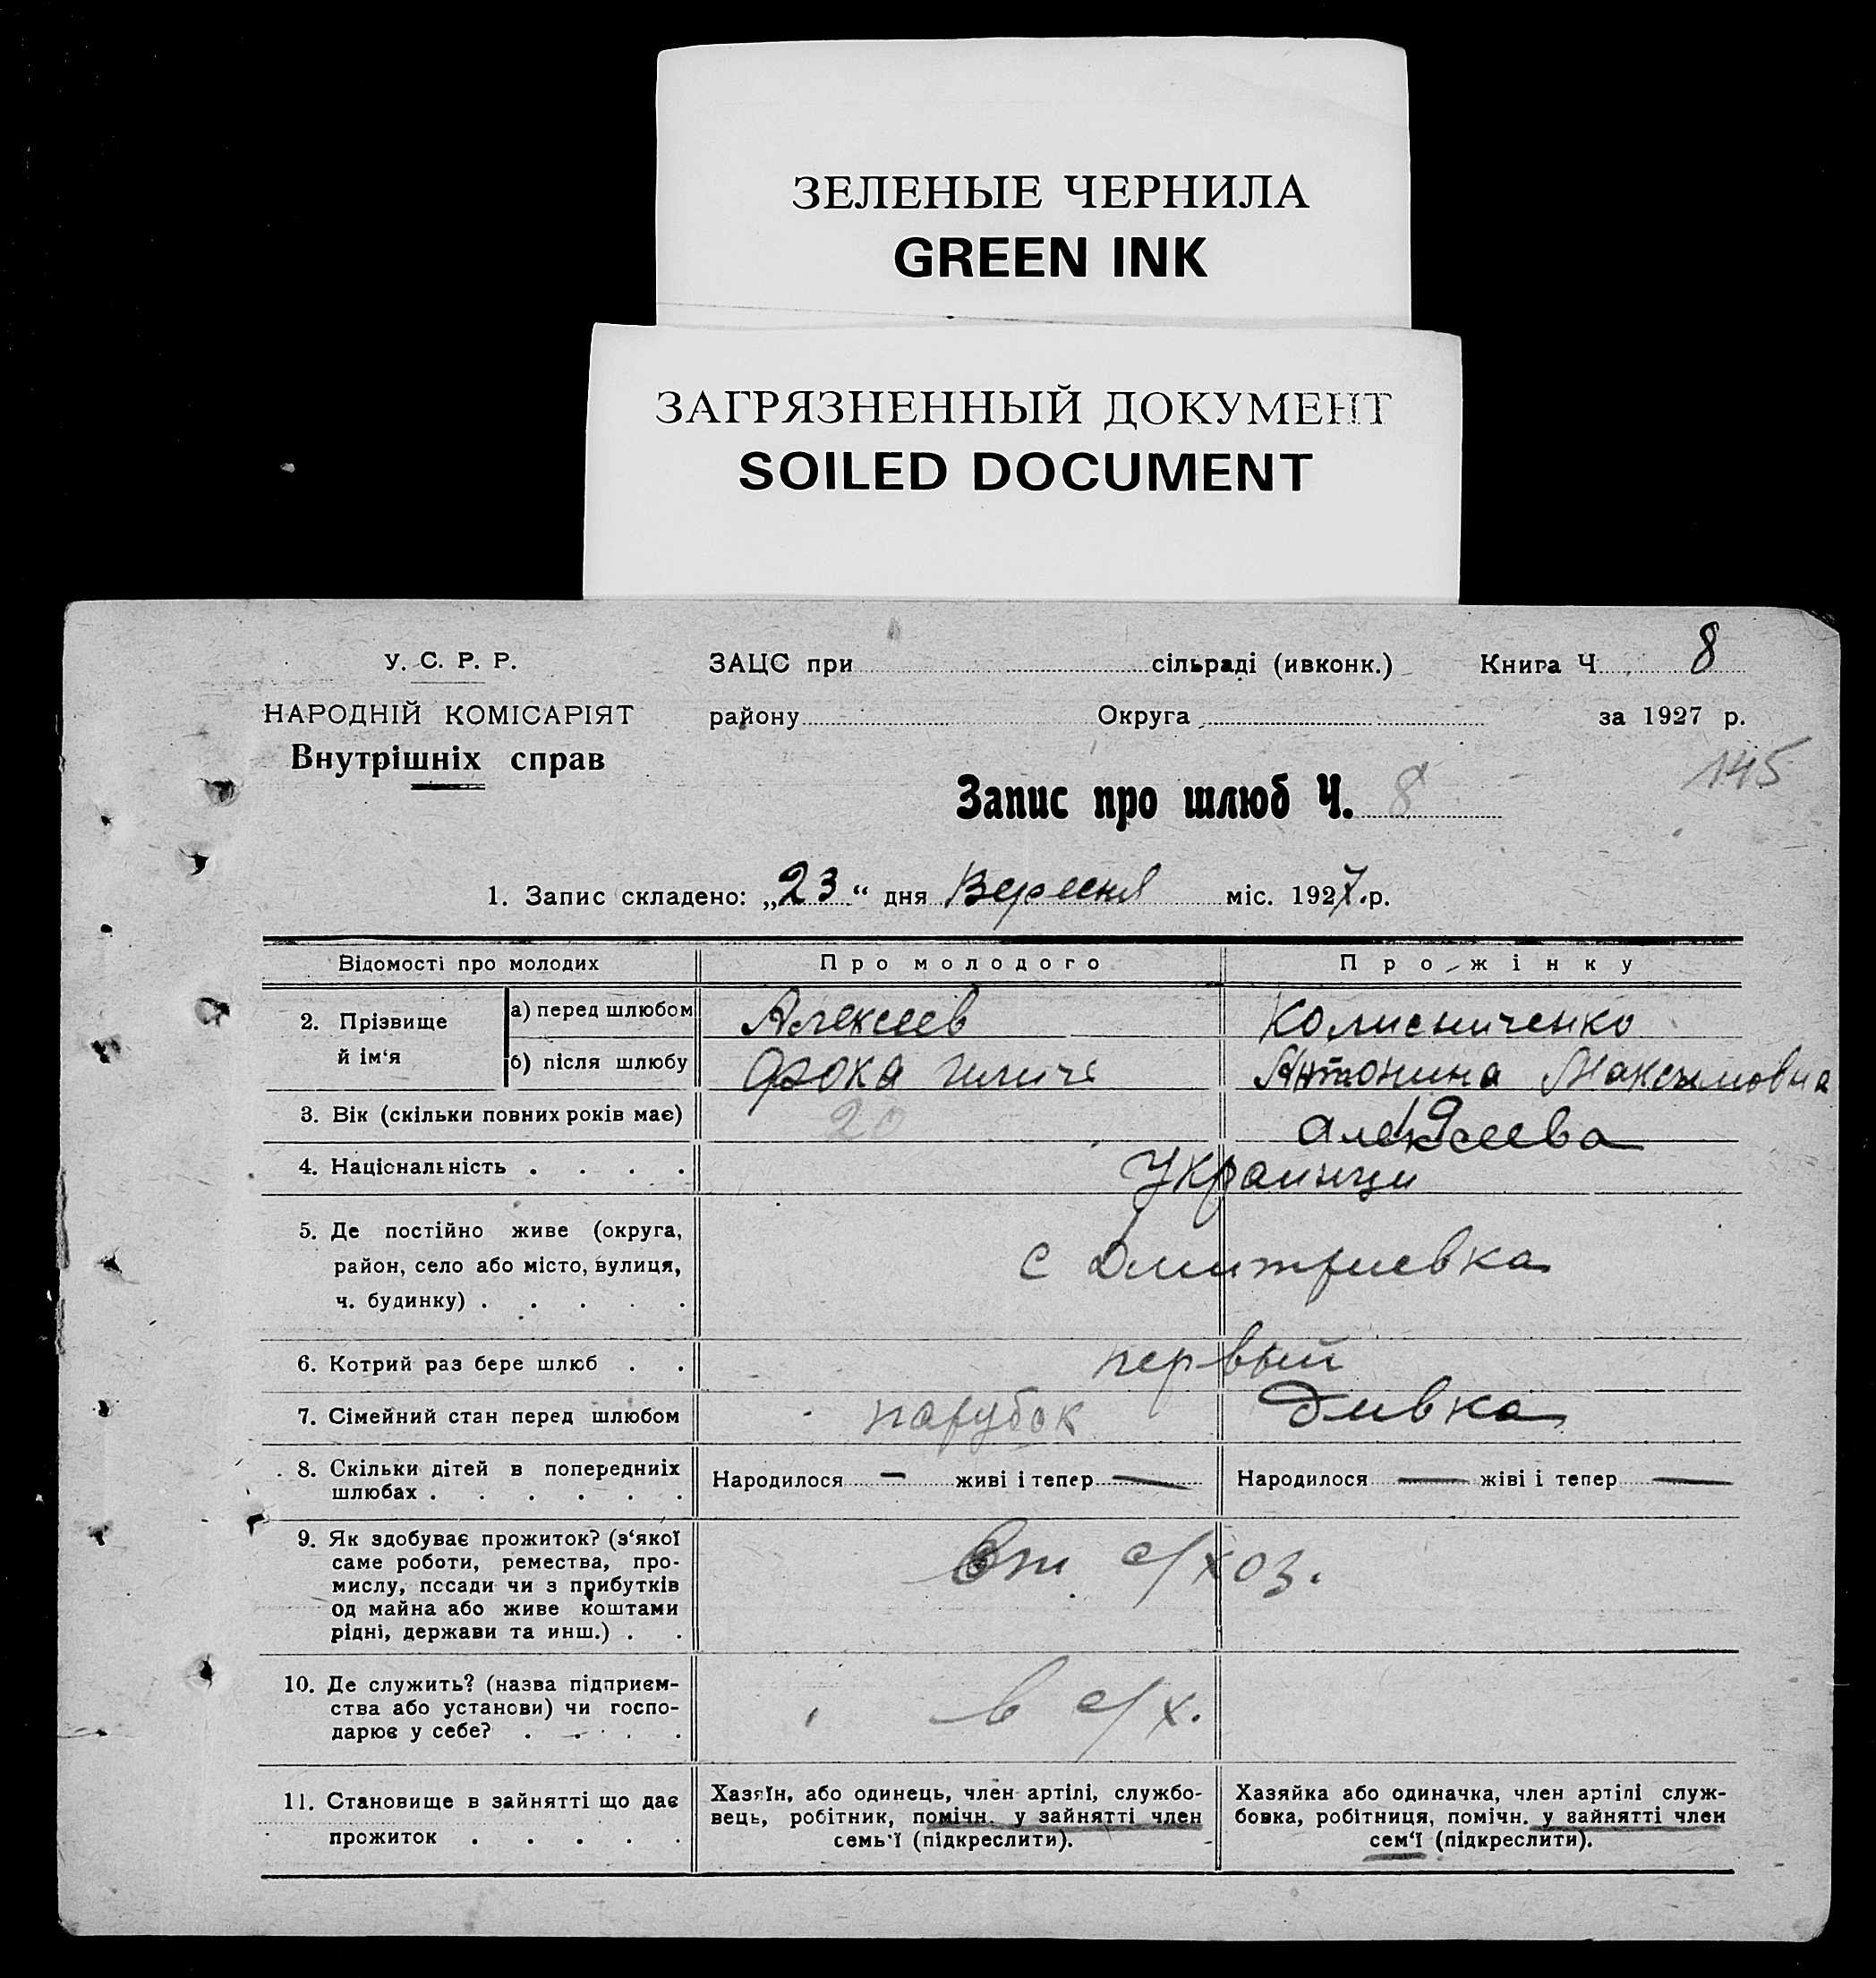 ЗЕЛЕНЫЕ ЧЕРНИЛА
GREEN INK
ЗАГРЯЗНЕННЫЙ ДОКУМЕНТ
SOILED DOCUMENT
У. С. Р. Р.
НАРОДНІЙ КОМІСАРІЯТ
Внутрішніх справ
ЗАЦС при сільраді (ивконк.) Книга Ч 8
району Округа за 1927 р.
145
Запис про шлюб Ч. 8
1. Запис складено: „23“ дня Вересня міс. 1927.р.
Відомості про молодих Про молодого Про жінку
2. Прізвище й ім‘я
а) перед шлюбом Алексеев Колисниченко
б) після шлюбу Фока Антонина Максимовна
3. Вік (скільки повних років має) 20 19
Алексеева
4. Національність . . . . Украинци
5. Де постійно живе (округа,
район, село або місто, вулиця,
ч. будинку) . . . . .
с Дмитриевка
6. Котрий раз бере шлюб . . первый
7. Сімейний стан перед шлюбом парубок дивка
8. Скільки дітей в попередниіх
шлюбах . . . . . .
Народилося — живі і тепер — Народилося — жіві і тепер —
9. Як здобуває прожиток? (з‘якої
саме роботи, ремества, про-
мислу, посади чи з прибутків
од майна або живе коштами
рідні, держави та инш.) . .
с/хоз.
10. Де служить? (назва підприєм-
ства або установи) чи госпо-
дарює у себе? . . . .
в с/х.
11. Становище в зайнятті що дає
прожиток . . . . .
Хазяїн, або одинець, член артілі, службо-
вець, робітник, помічн. у зайнятті член
семь‘ї (підкреслити).
Хазяйка або одиначка, член артілі служ-
бовка, робітниця, помічн. у зайнятті член
сем‘ї (підкреслити).